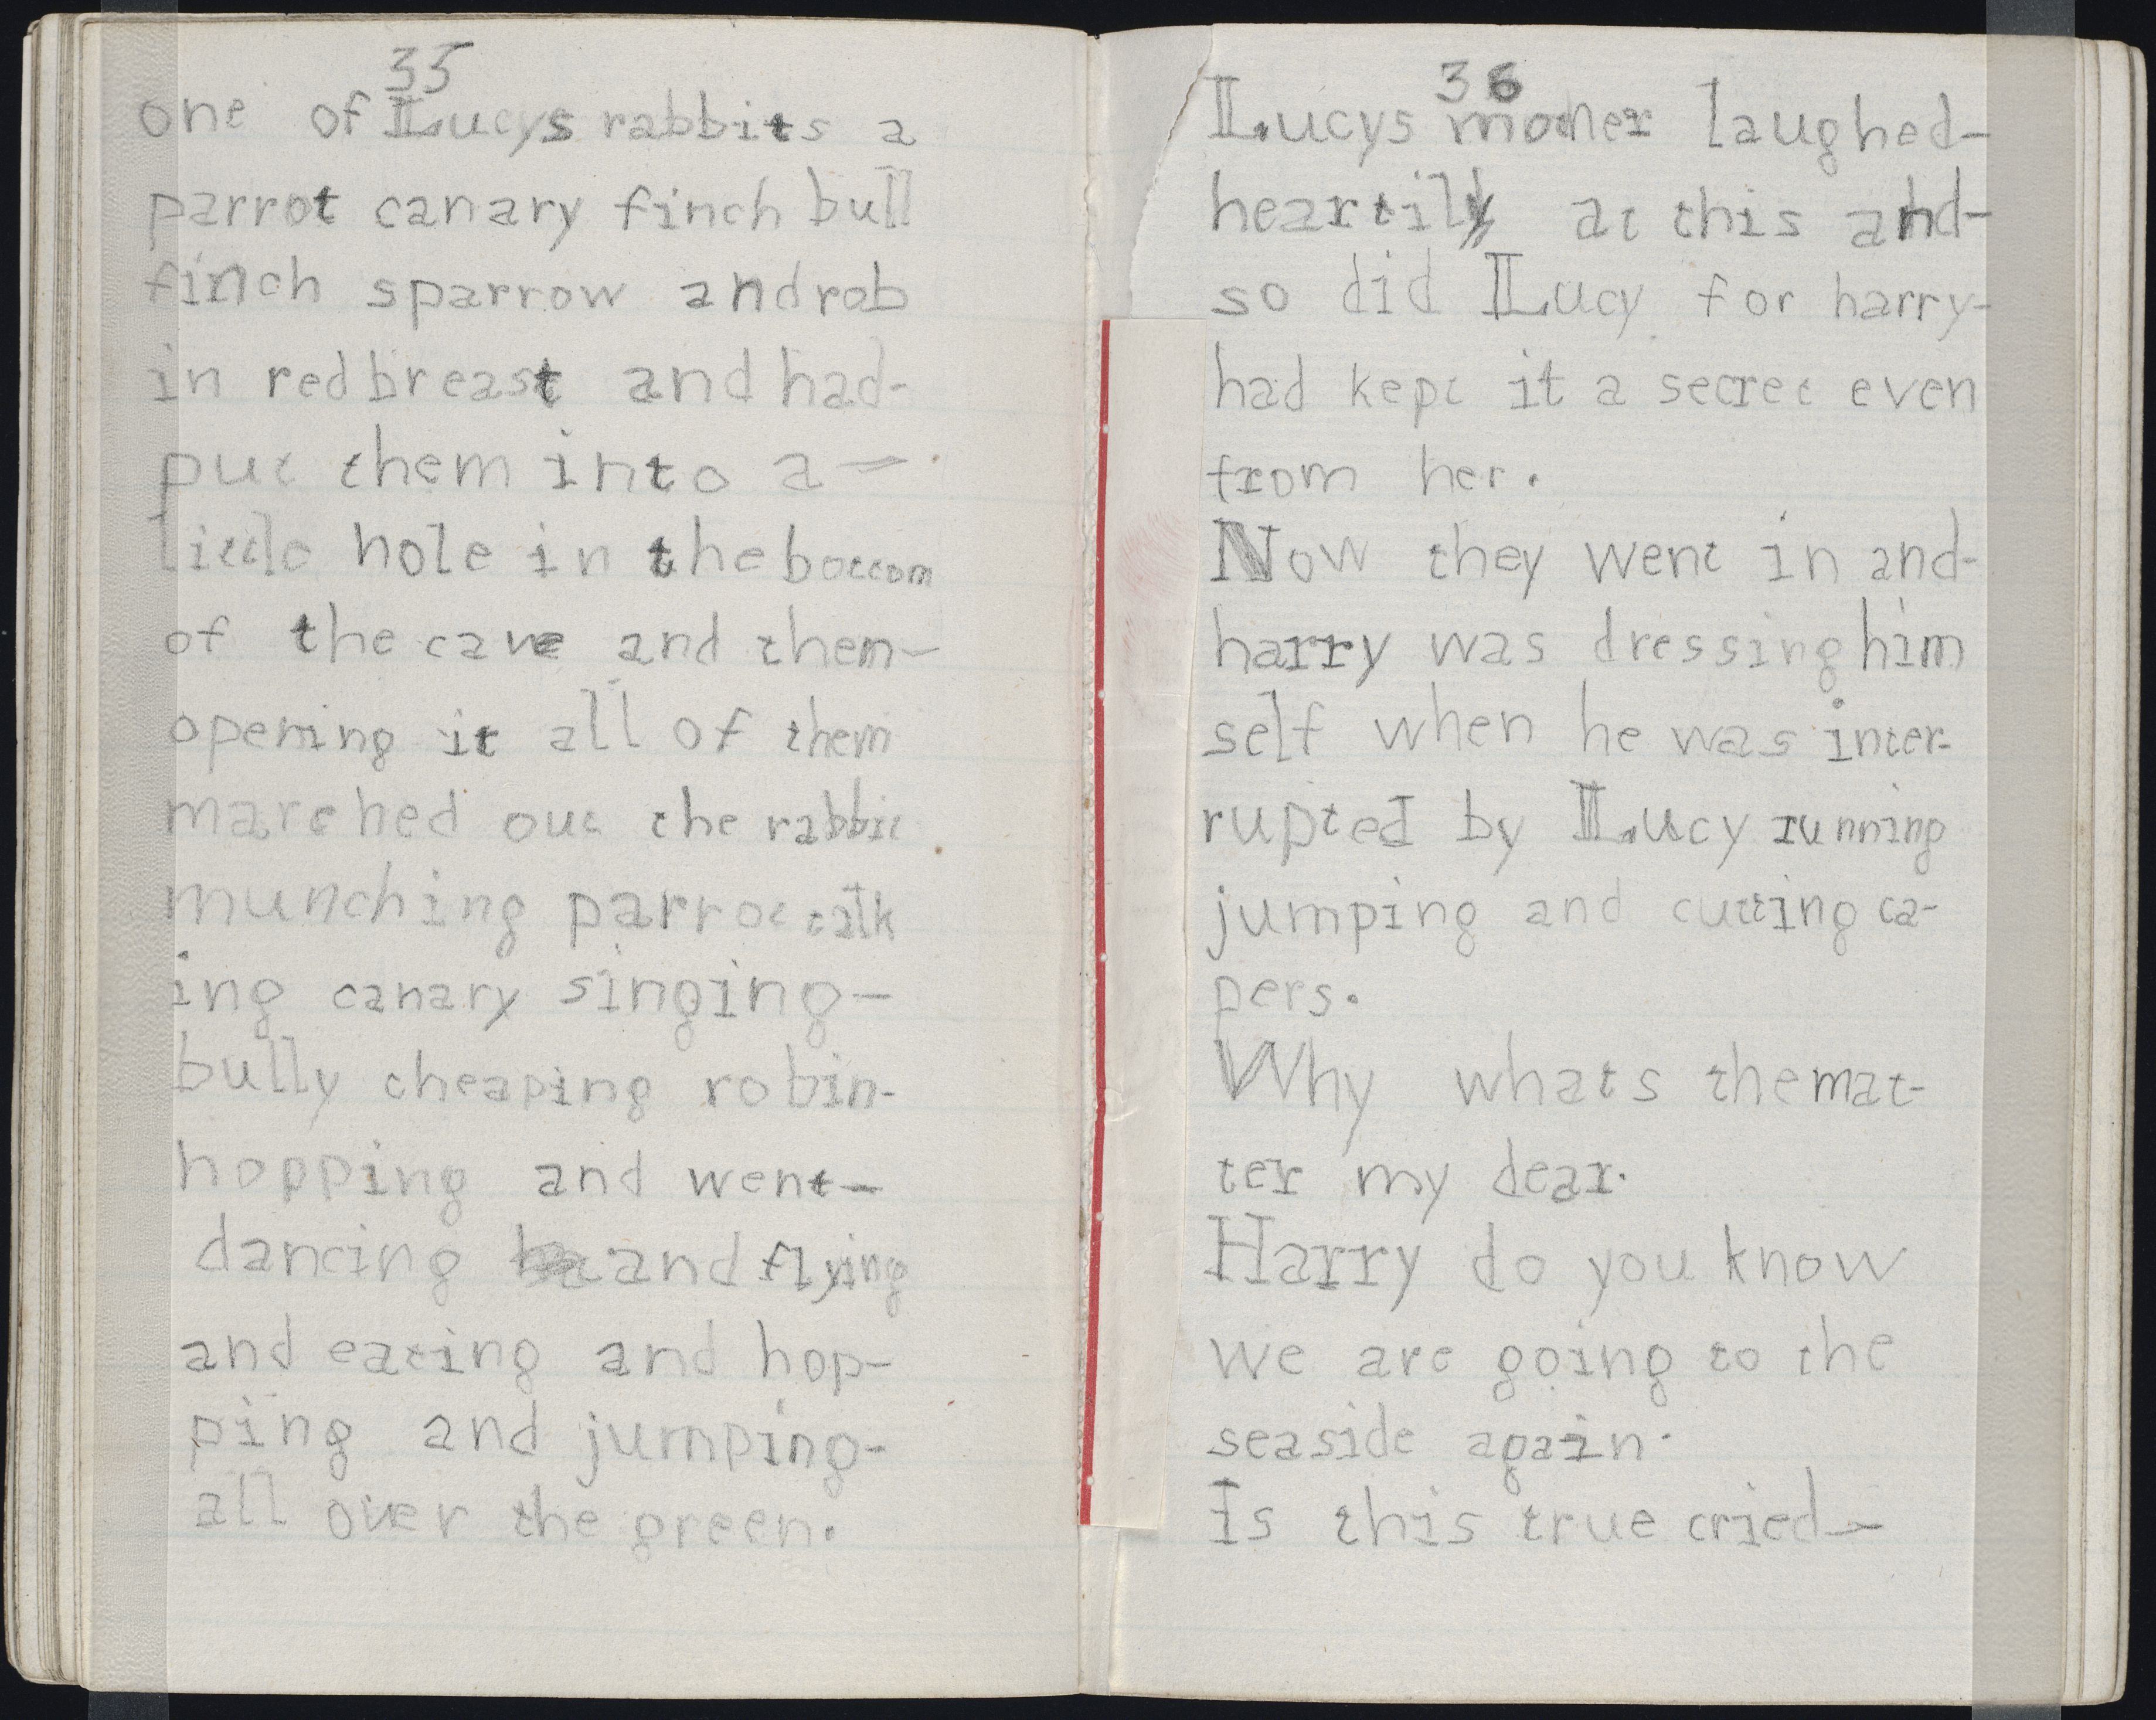 35
one of Lucys rabbits a
parrot canary finch bull
finch sparrow and rob
in redbreast and had-
put them into a -
little hole in the bottom
of the cave and them-
opening it all of them
marched out the rabbit
munching parrot talk
ing canary singing-
bully cheaping robin-
hopping and went-
dancing and flying
and eating and hop-
ping and jumping-
all over the green.
36
Lucys mother laughed-
heartily at this and-
so did Lucy for harry-
had kept it a secret even
from her.
Now they went in and-
harry was dressing him
self when he was inter-
rupted by Lucy running
jumping and cutting ca-
pers.
Why whats the mat-
ter my dear.
Harry do you know
we are going to the
seaside again.
Is this true cried-